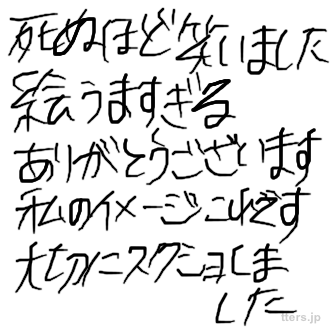 死ぬほど笑いました
絵うますぎる
ありがとうございます
私のイメージこれです
大切にスクショしま
した
tters.jp